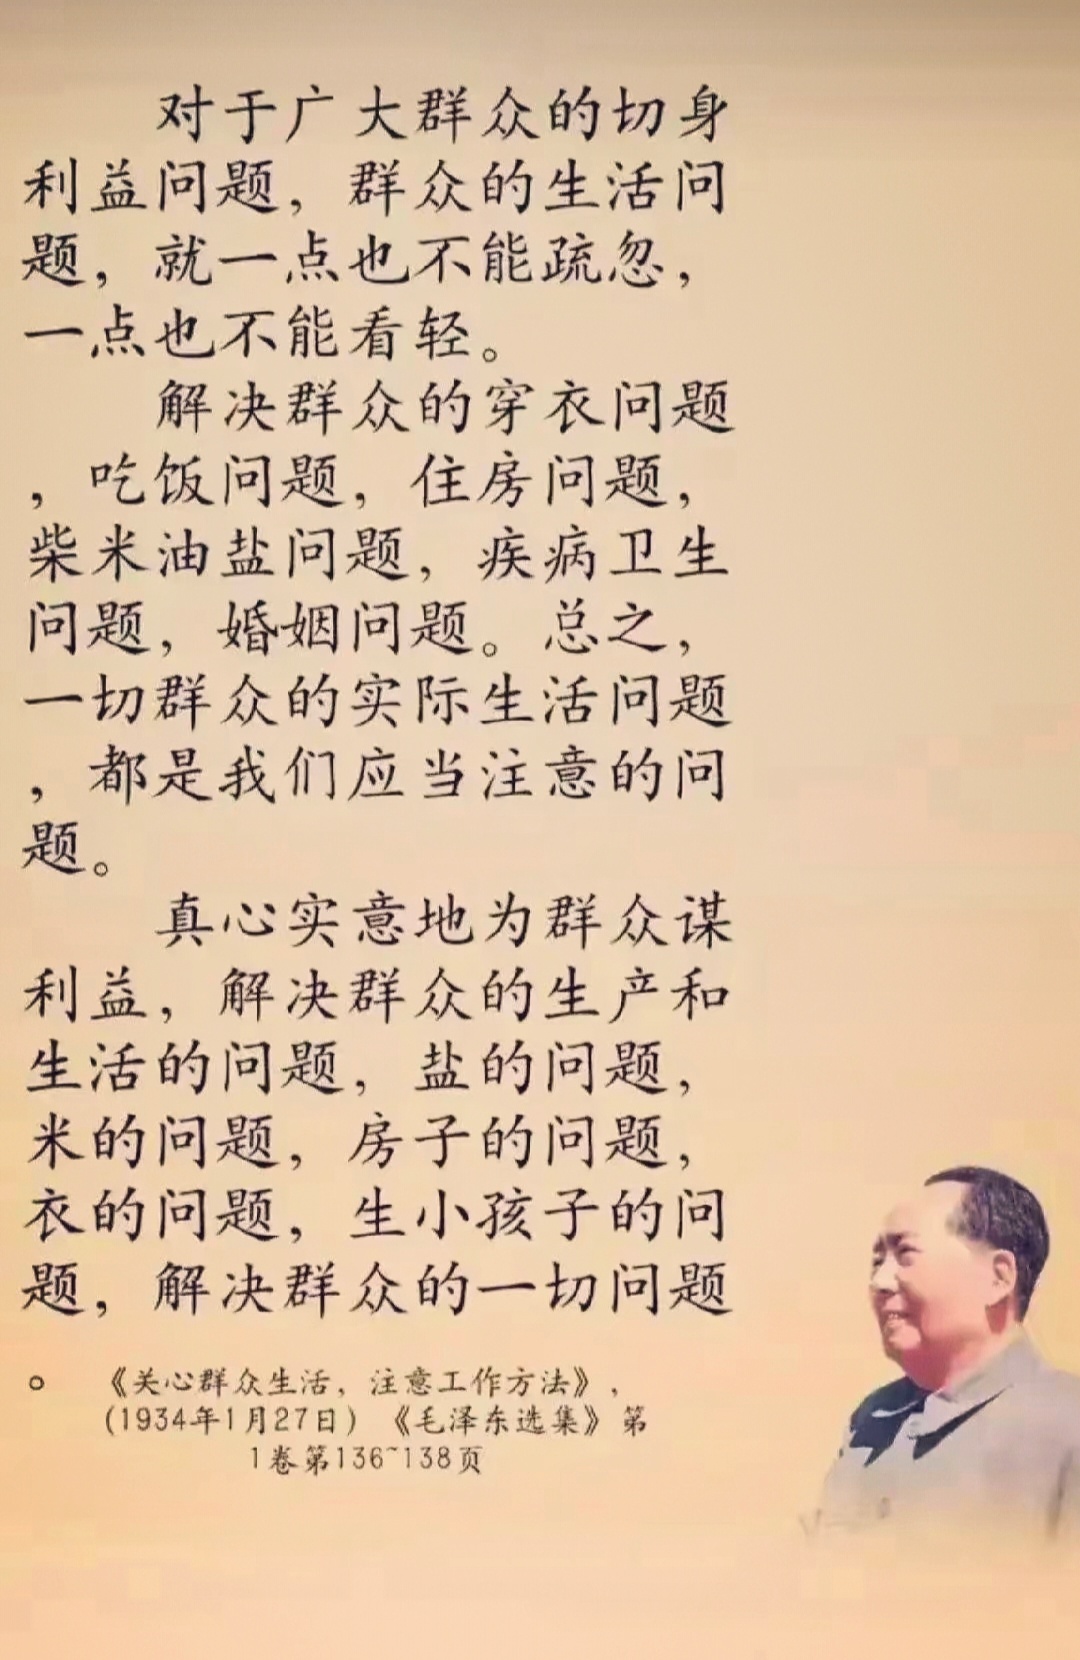 对于广大群众的切身
利益问题，群众的生活问
题，就一点也不能疏忽，
一点也不能看轻。
解决群众的穿衣问题
，吃饭问题，住房问题，
柴米油盐问题，疾病卫生
问题，婚姻问题。总之，
一切群众的实际生活问题
，都是我们应当注意的问
题。
真心实意地为群众谋
利益，解决群众的生产和
生活的问题，盐的问题，
米的问题，房子的问题，
衣的问题，生小孩子的问
题，解决群众的一切问题
。 《关心群众生活，注意工作方法》，
（1934年1月27日）《毛泽东选集》第
1卷第136~138页